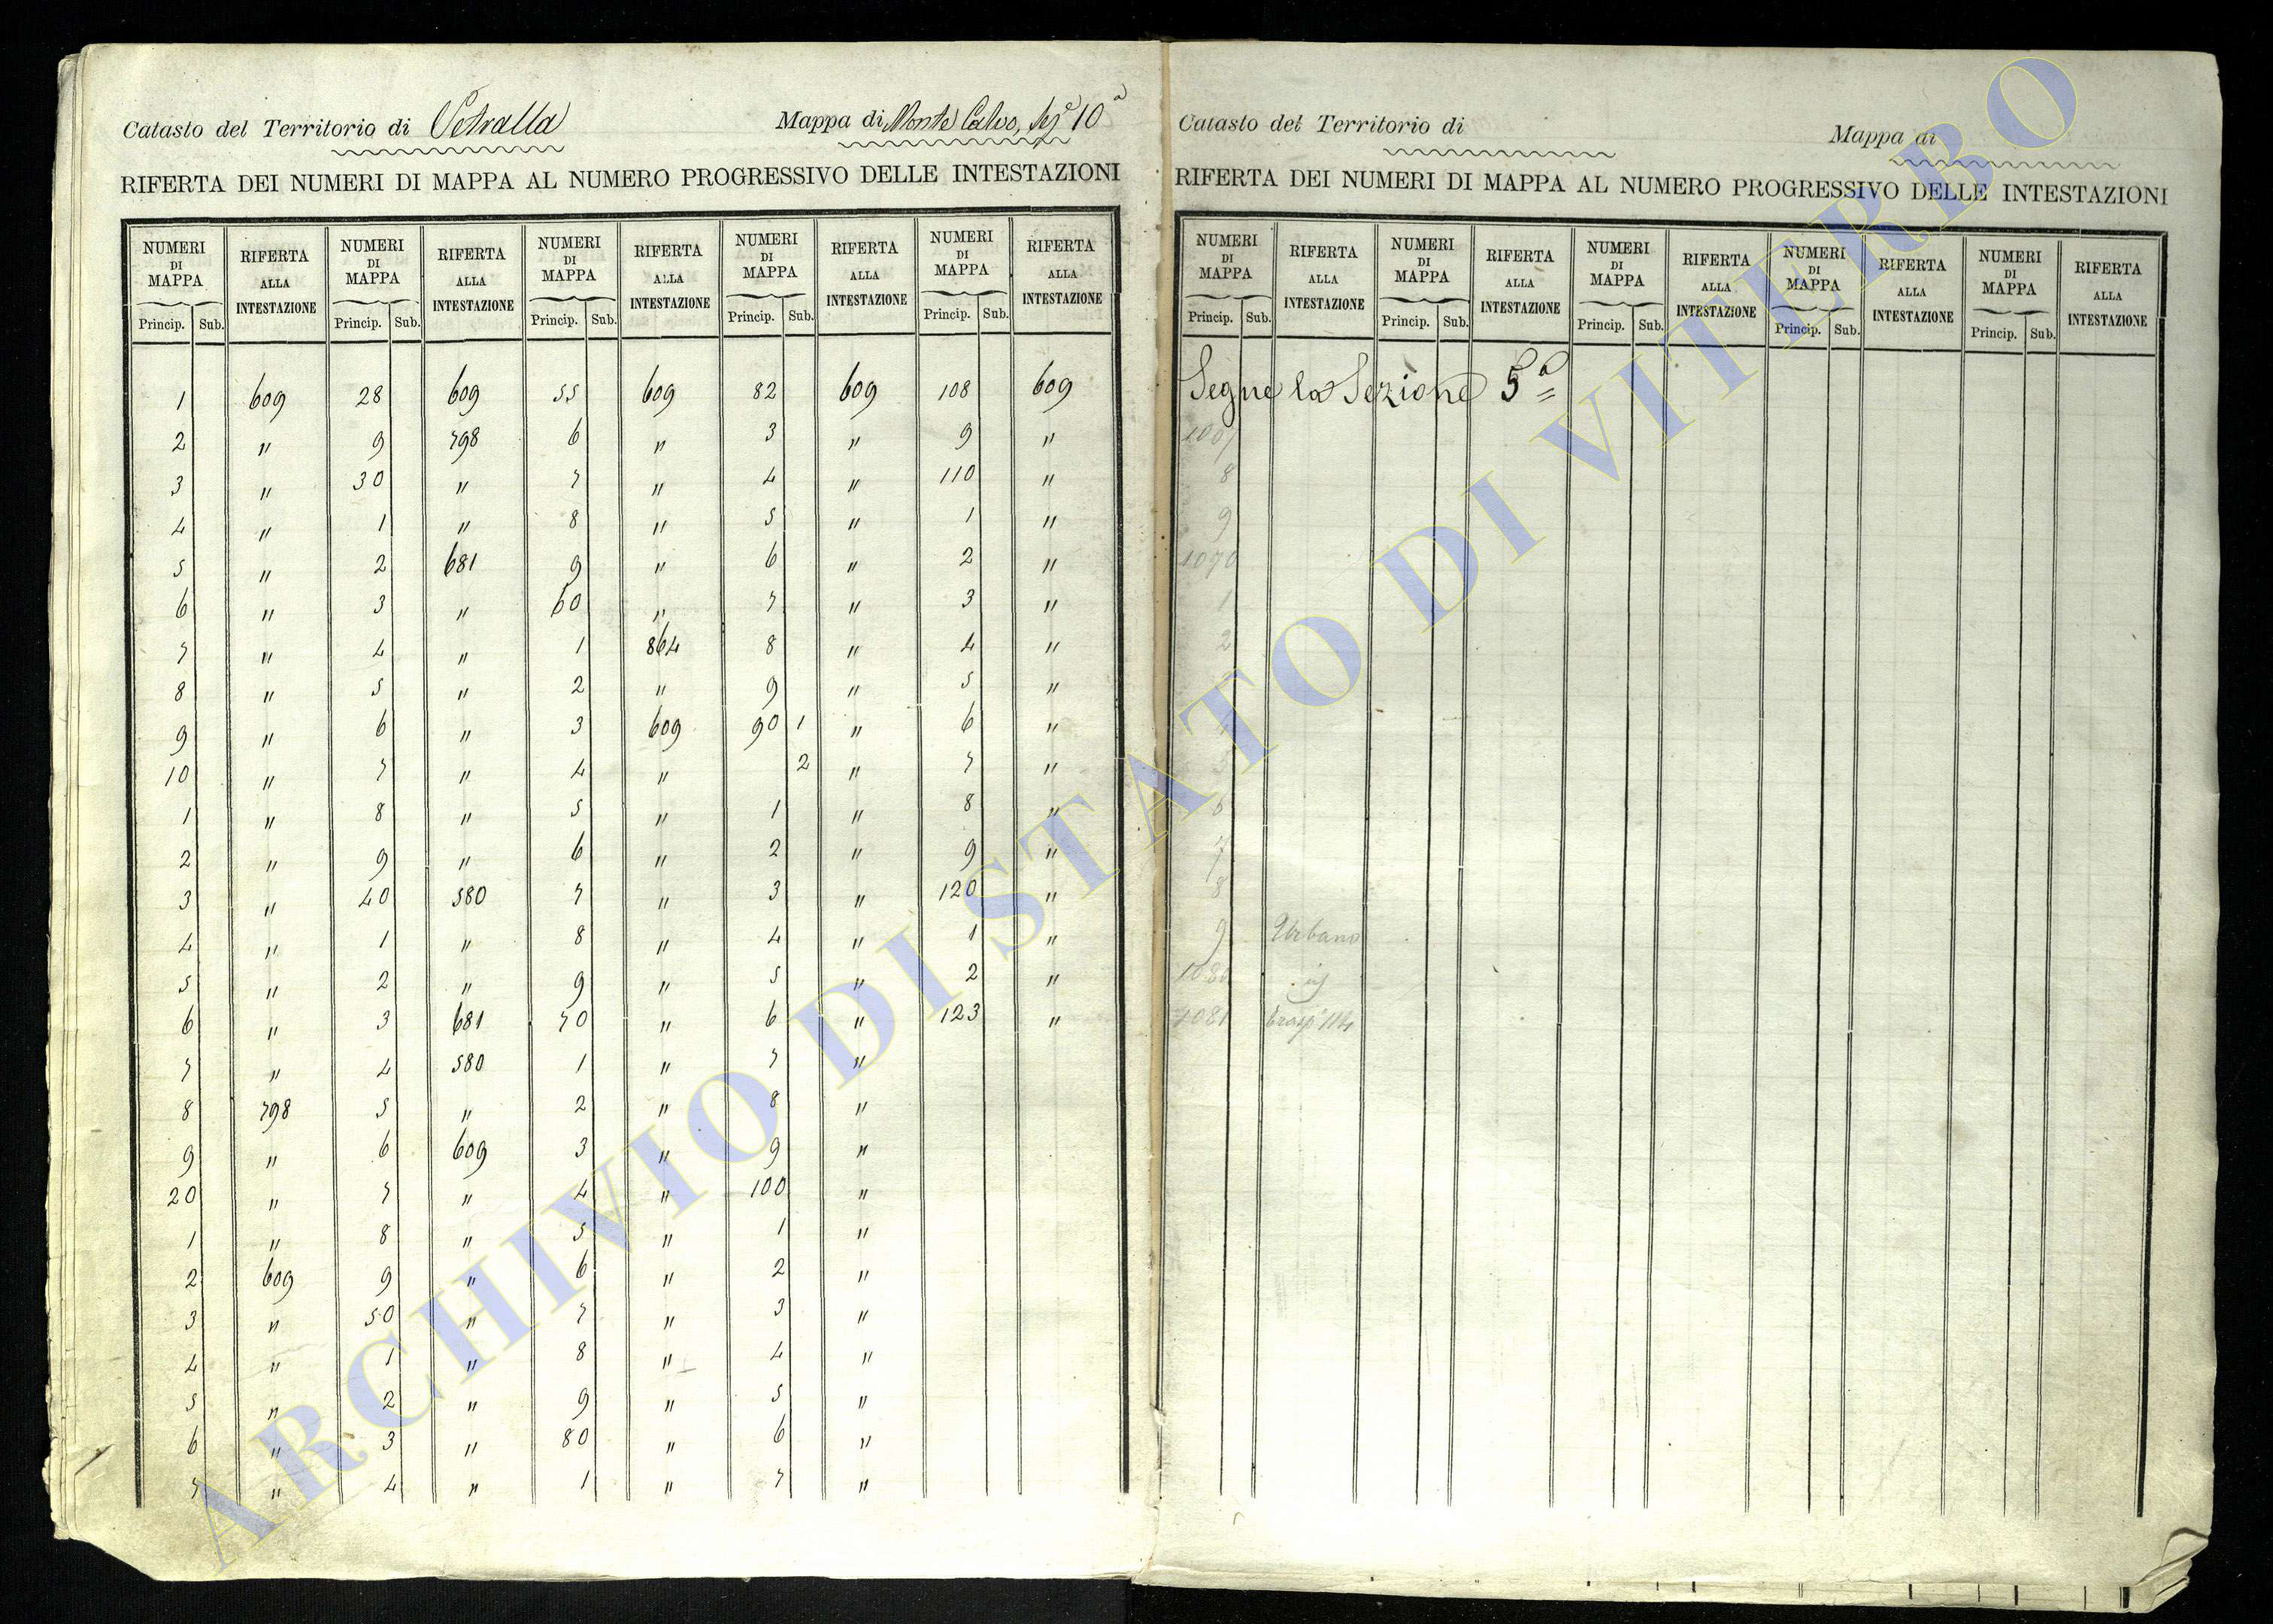 Catasto del Territorio di Vetralla Mappa di Monte Calvo, Sez.e 10a
RIFERTA DEI NUMERI DI MAPPA AL NUMERO PROGRESSIVO DELLE INTESTAZIONI
NUMERI DI MAPPA RIFERTA ALLA INTESTAZIONE NUMERI DI MAPPA RIFERTA ALLA INTESTAZIONE NUMERI DI MAPPA RIFERTA ALLA INTESTAZIONE NUMERI DI MAPPA RIFERTA ALLA INTESTAZIONE NUMERI DI MAPPA RIFERTA ALLA INTESTAZIONE
Princip. Sub. Princip. Sub. Princip. Sub. Princip. Sub. Princip. Sub.
1 609 28 609 55 609 82 609 108 609
2 " 9 798 6 " 3 " 9 "
3 " 30 " 7 " 4 " 110 "
4 " 1 " 8 " 5 " 1 "
5 " 2 681 9 " 6 " 2 "
6 " 3 " 60 " 7 " 3 "
7 " 4 " 1 864 8 " 4 "
8 " 5 " 2 " 9 5 "
9 " 6 " 3 609 90 1 " 6 "
10 " 7 " 4 " 2 " 7 "
1 " 8 " 5 " 1 " 8 "
2 " 9 " 6 " 2 " 9 "
3 " 40 580 7 " 3 " 120 "
4 " 1 " 8 " 4 " 1 "
5 " 2 " 9 " 5 " 2 "
6 " 3 681 70 " 6 " 123 "
7 " 4 580 1 " 7 "
8 798 5 " 2 " 8 "
9 " 6 609 3 " 9 "
20 " 7 " 4 " 100 "
1 " 8 " 5 " 1 "
2 609 9 " 6 " 2 "
3 " 50 " 7 " 3 "
4 " 1 " 8 " 4 "
5 " 2 " 9 " 5 "
6 " 3 " 80 " 6 "
7 " 4 " 1 " 7 "
Catasto del Territorio di Mappa di
RIFERTA DEI NUMERI DI MAPPA AL NUMERO PROGRESSIVO DELLE INTESTAZIONI
NUMERI DI MAPPA RIFERTA ALLA INTESTAZIONE NUMERI DI MAPPA RIFERTA ALLA INTESTAZIONE NUMERI DI MAPPA RIFERTA ALLA INTESTAZIONE NUMERI DI MAPPA RIFERTA ALLA INTESTAZIONE NUMERI DI MAPPA RIFERTA ALLA INTESTAZIONE
Princip. Sub. Princip. Sub. Princip. Sub. Princip. Sub. Princip. Sub.
Segue la Sezione 5a
8
9
1070
1
2
5
6
7
8
9 Urbano
1080
1081
ARCHIVIO DI STATO DI VITERBO